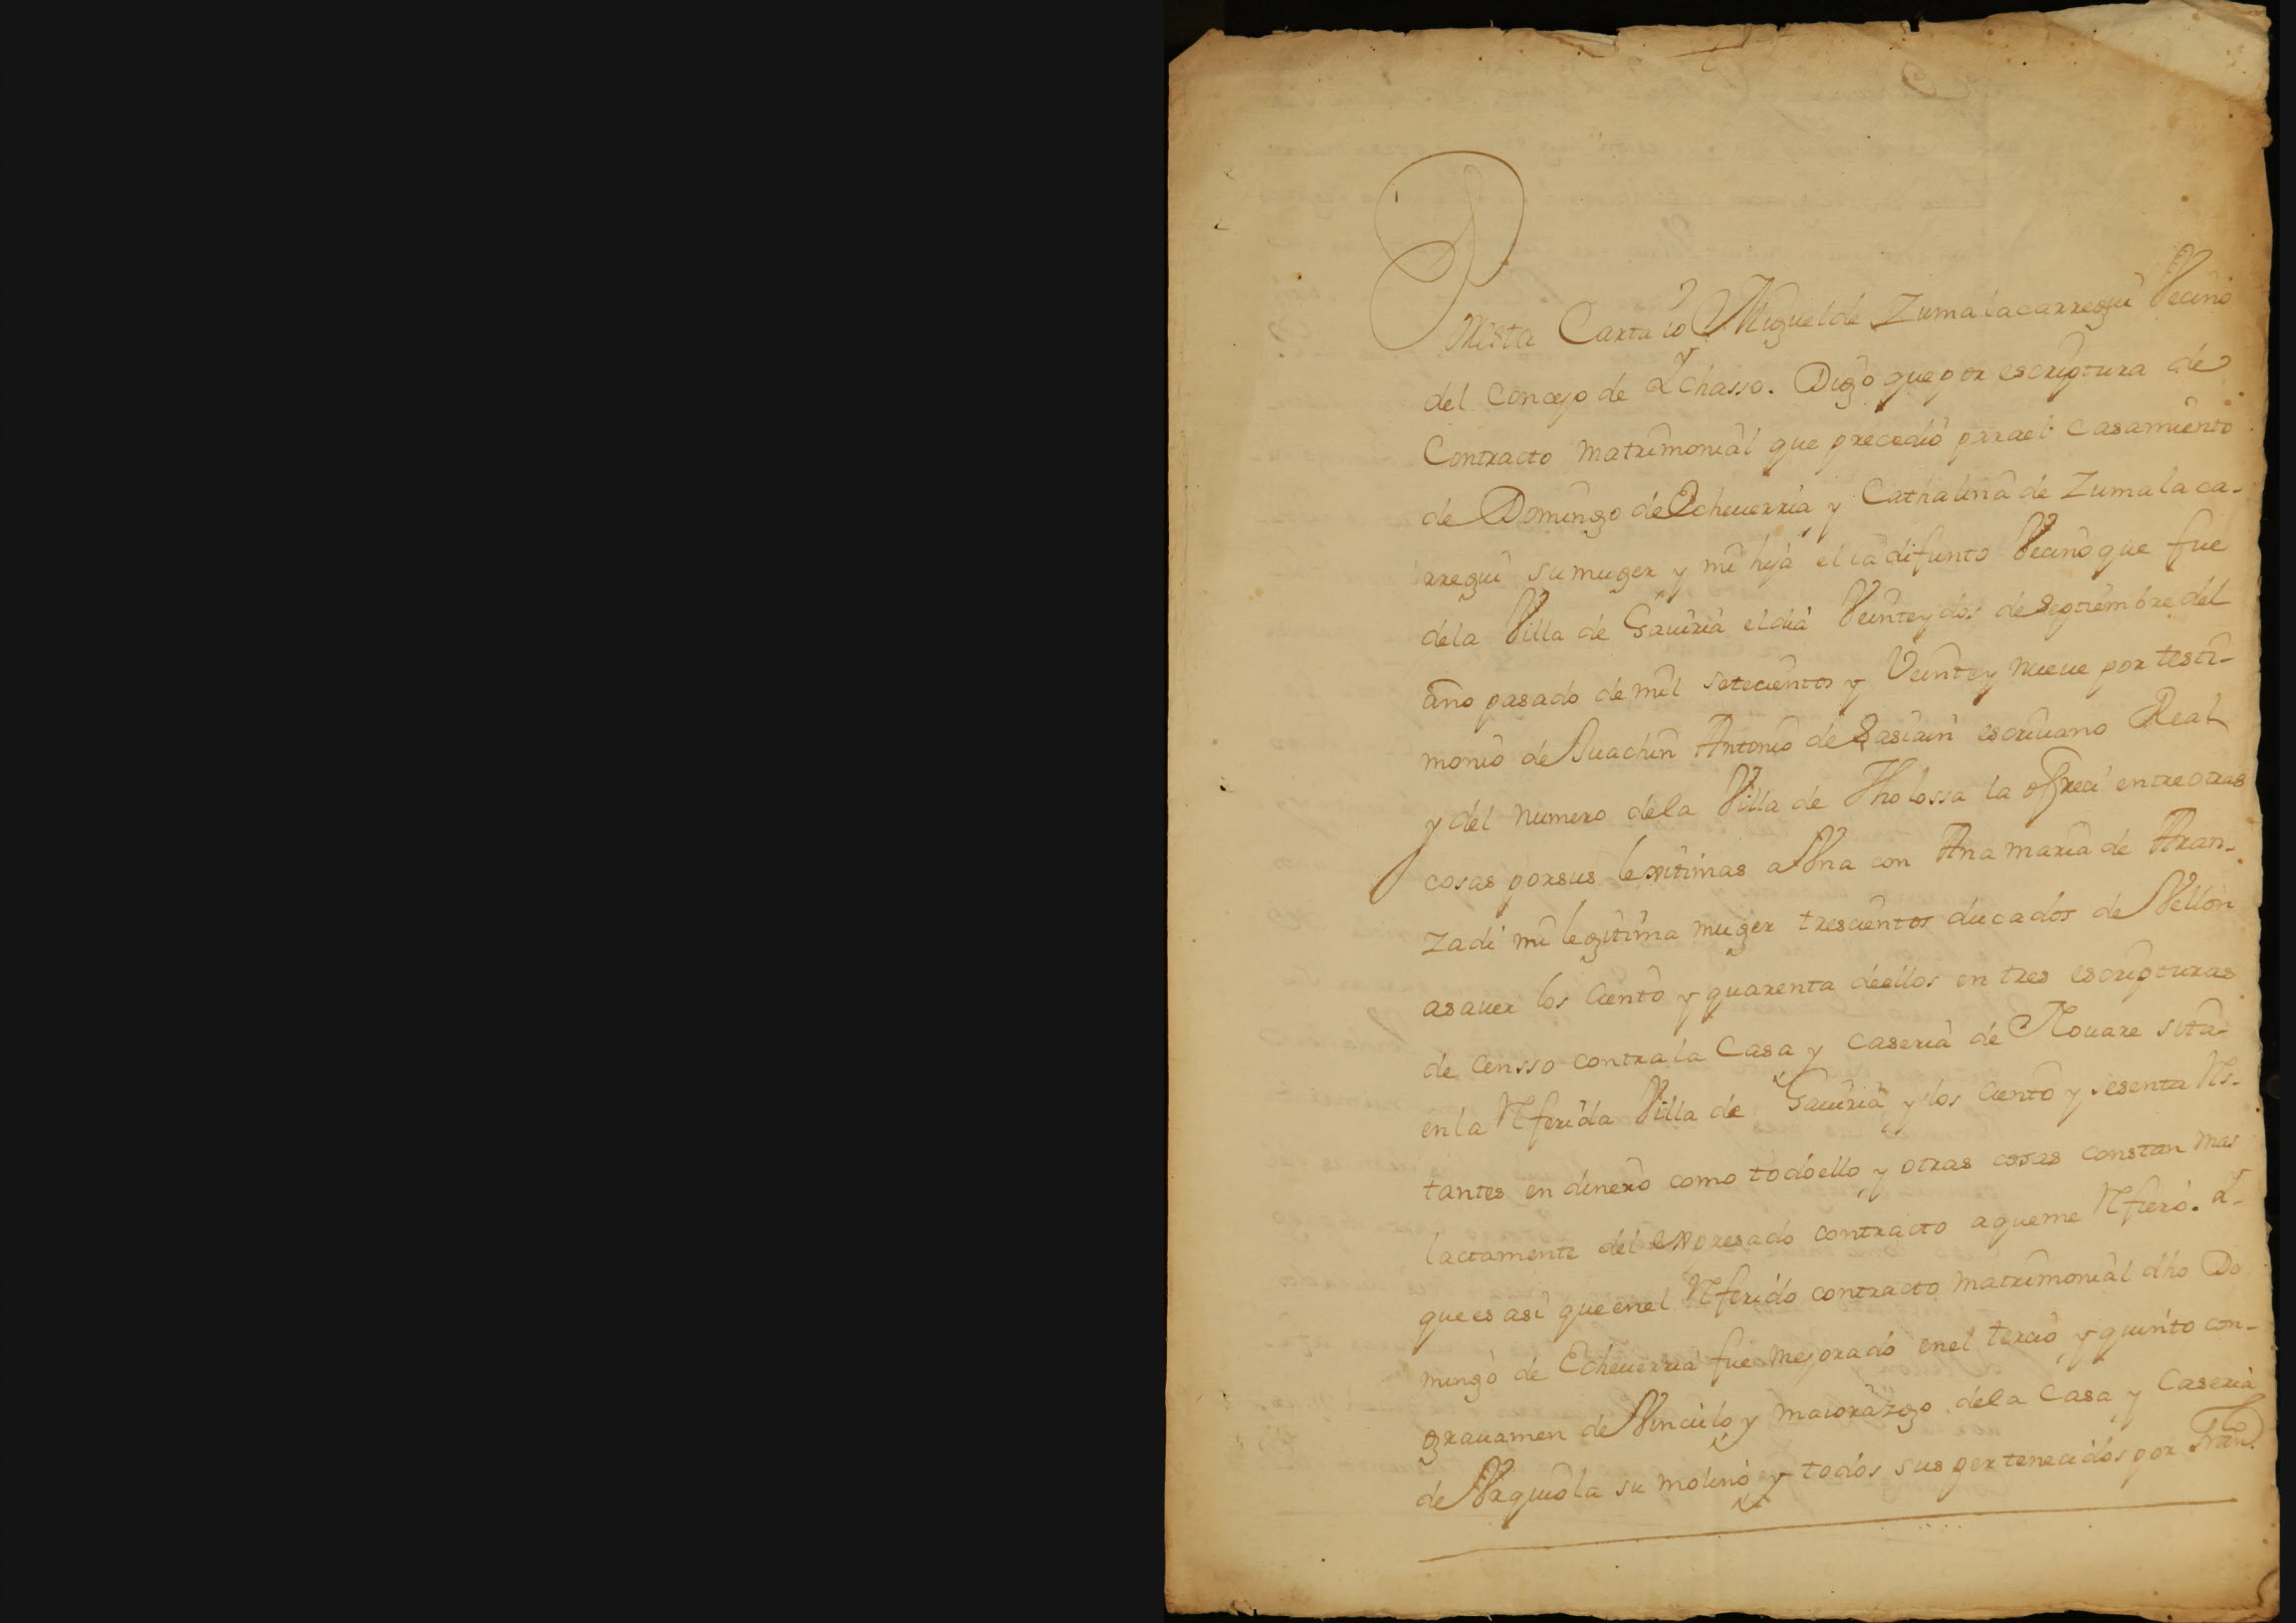 Por esta Carta io Miguel de Zumalacarregui Vecino
del Concejo de Ychasso. Digo que por escriptura de
Contracto matrimonial que precedio para el Casamiento
de Domingo de Echeuerria y Cathalina de Zumalaca-
rregui su muger y mi hija el ia difunto Vecino que fue
dela Villa de Gauiria el dia Veinte y dos de Septiembre del
año pasado de mil setecientos y Veinte y nueue por testi-
monio de Juachin Antonio de Sasiain escriuano Real
y del numero dela Villa de Tholossa la ofreci entre otras
cosas por sus lexitimas a Vna con Ana maria de Aran-
zadi mi legitima muger trescientos ducados de Vellon
asauer los Ciento y quarenta deellos en tres escripturas
de Censso contra la Casa y caseria de Rouare sita-
en la Referida Villa de Gauiria y los Ciento y sesenta Rs-
tantes en dinero como todo ello y otras cosas constan mas
lactamente del expresado contracto aque me Refiero. Y-
que es asi que en el Referido contracto matrimonial dho Do
mingo de Echeuerria fue mejorado en el tercio y quinto con-
grauamen de Vinculo y maiorazgo dela Casa y Caseria
de Vrquiola su molino y todos sus pertenecidos por Fran.co